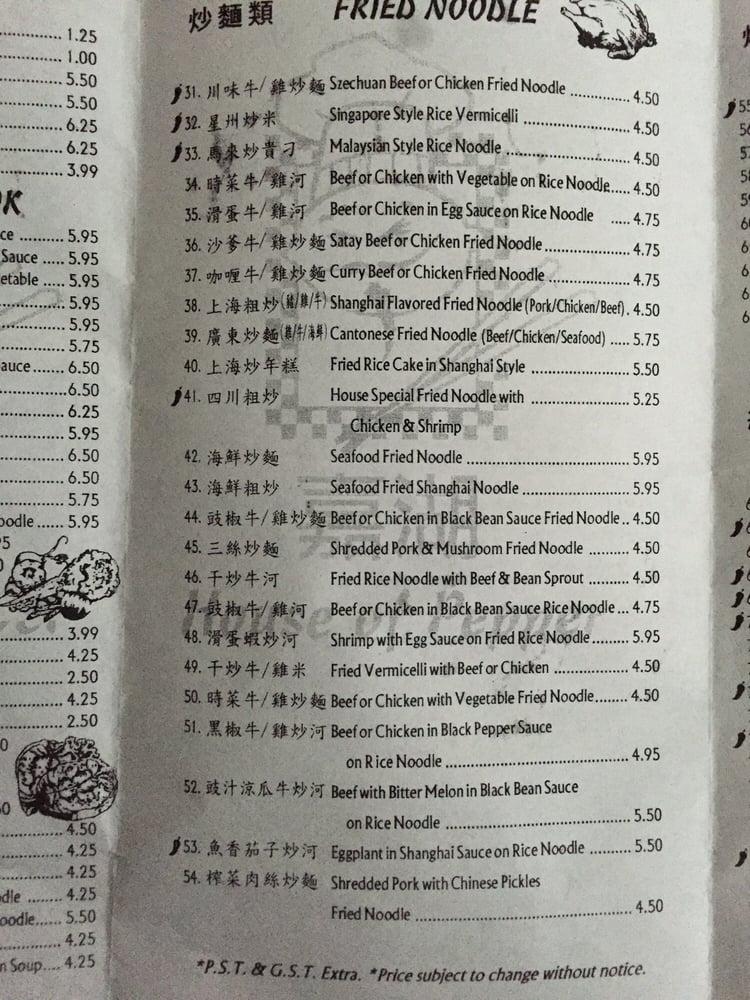 炒麵類 FRIED NOODLE
31. 川味牛/雞炒麵 Szechuan Beef or Chicken Fried Noodle 4.50
32. 星州炒米 Singapore Style Rice Vermicelli 4.50
33. 馬來炒貴刁 Malaysian Style Rice Noodle 4.50
34. 時菜牛/雞河 Beef or Chicken with Vegetable on Rice Noodle 4.50
35. 滑蛋牛/雞河 Beef or Chicken in Egg Sauce on Rice Noodle 4.75
36. 沙爹牛/雞炒麵 Satay Beef or Chicken Fried Noodle 4.75
37. 咖喱牛/雞炒麵 Curry Beef or Chicken Fried Noodle 4.75
38. 上海粗炒(豬/雞/牛) Shanghai Flavored Fried Noodle (Pork/Chicken/Beef). 4.50
39. 廣東炒麵(雞/牛/海鮮) Cantonese Fried Noodle (Beef/Chicken/Seafood) 5.75
40. 上海炒年糕 Fried Rice Cake in Shanghai Style 5.50
41. 四川粗炒 House Special Fried Noodle with 5.25
Chicken & Shrimp
42. 海鮮炒麵 Seafood Fried Noodle 5.95
43. 海鮮粗炒 Seafood Fried Shanghai Noodle 5.95
44. 豉椒牛/雞炒麵 Beef or Chicken in Black Bean Sauce Fried Noodle 4.50
45. 三絲炒麵 Shredded Pork & Mushroom Fried Noodle 4.50
46. 干炒牛河 Fried Rice Noodle with Beef & Bean Sprout 4.50
47. 豉椒牛/雞河 Beef or Chicken in Black Bean Sauce Rice Noodle 4.75
48. 滑蛋蝦炒河 Shrimp with Egg Sauce on Fried Rice Noodle 5.95
49. 干炒牛/雞米 Fried Vermicelli with Beef or Chicken 4.50
50. 時菜牛/雞炒麵 Beef or Chicken with Vegetable Fried Noodle 4.50
51. 黑椒牛/雞炒河 Beef or Chicken in Black Pepper Sauce
on Rice Noodle 4.95
52. 豉汁涼瓜牛炒河 Beef with Bitter Melon in Black Bean Sauce
on Rice Noodle 5.50
53. 魚香茄子炒河 Eggplant in Shanghai Sauce on Rice Noodle 5.50
54. 榨菜肉絲炒麵 Shredded Pork with Chinese Pickles
Fried Noodle 4.50
*P.S.T. & G.S.T. Extra. *Price subject to change without notice.
House of Pepper
1.25
1.00
5.50
5.50
6.25
6.25
3.99
5.95
Sauce 5.95
5.95
5.95
5.95
5.75
6.50
6.50
6.25
5.95
6.50
6.50
5.75
5.95
3.99
4.25
2.50
4.25
2.50
4.50
4.25
4.25
4.25
5.50
4.25
n Soup 4.25